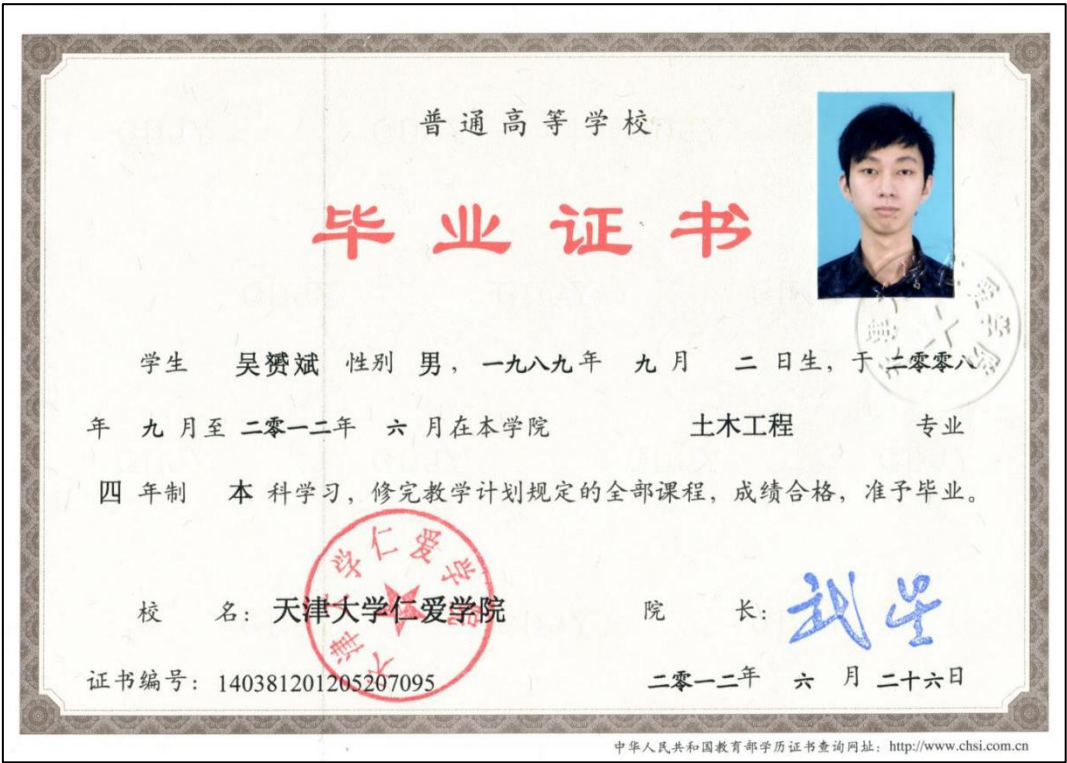 普通高等学校
毕业证书
学生 吴赟斌 性别 男，一九八九年 九月 二 日生，于 二零零八
年 九月至 二零一二年 六 月在本学院 土木工程 专业
四 年制 本 科学习，修完教学计划规定的全部课程，成绩合格，准予毕业。
天津大学仁爱学院
校 名：天津大学仁爱学院 院 长：
证书编号：140381201205207095 二零一二年 六 月 二十六日
中华人民共和国教育部学历证书查询网址：http://www.chsi.com.cn